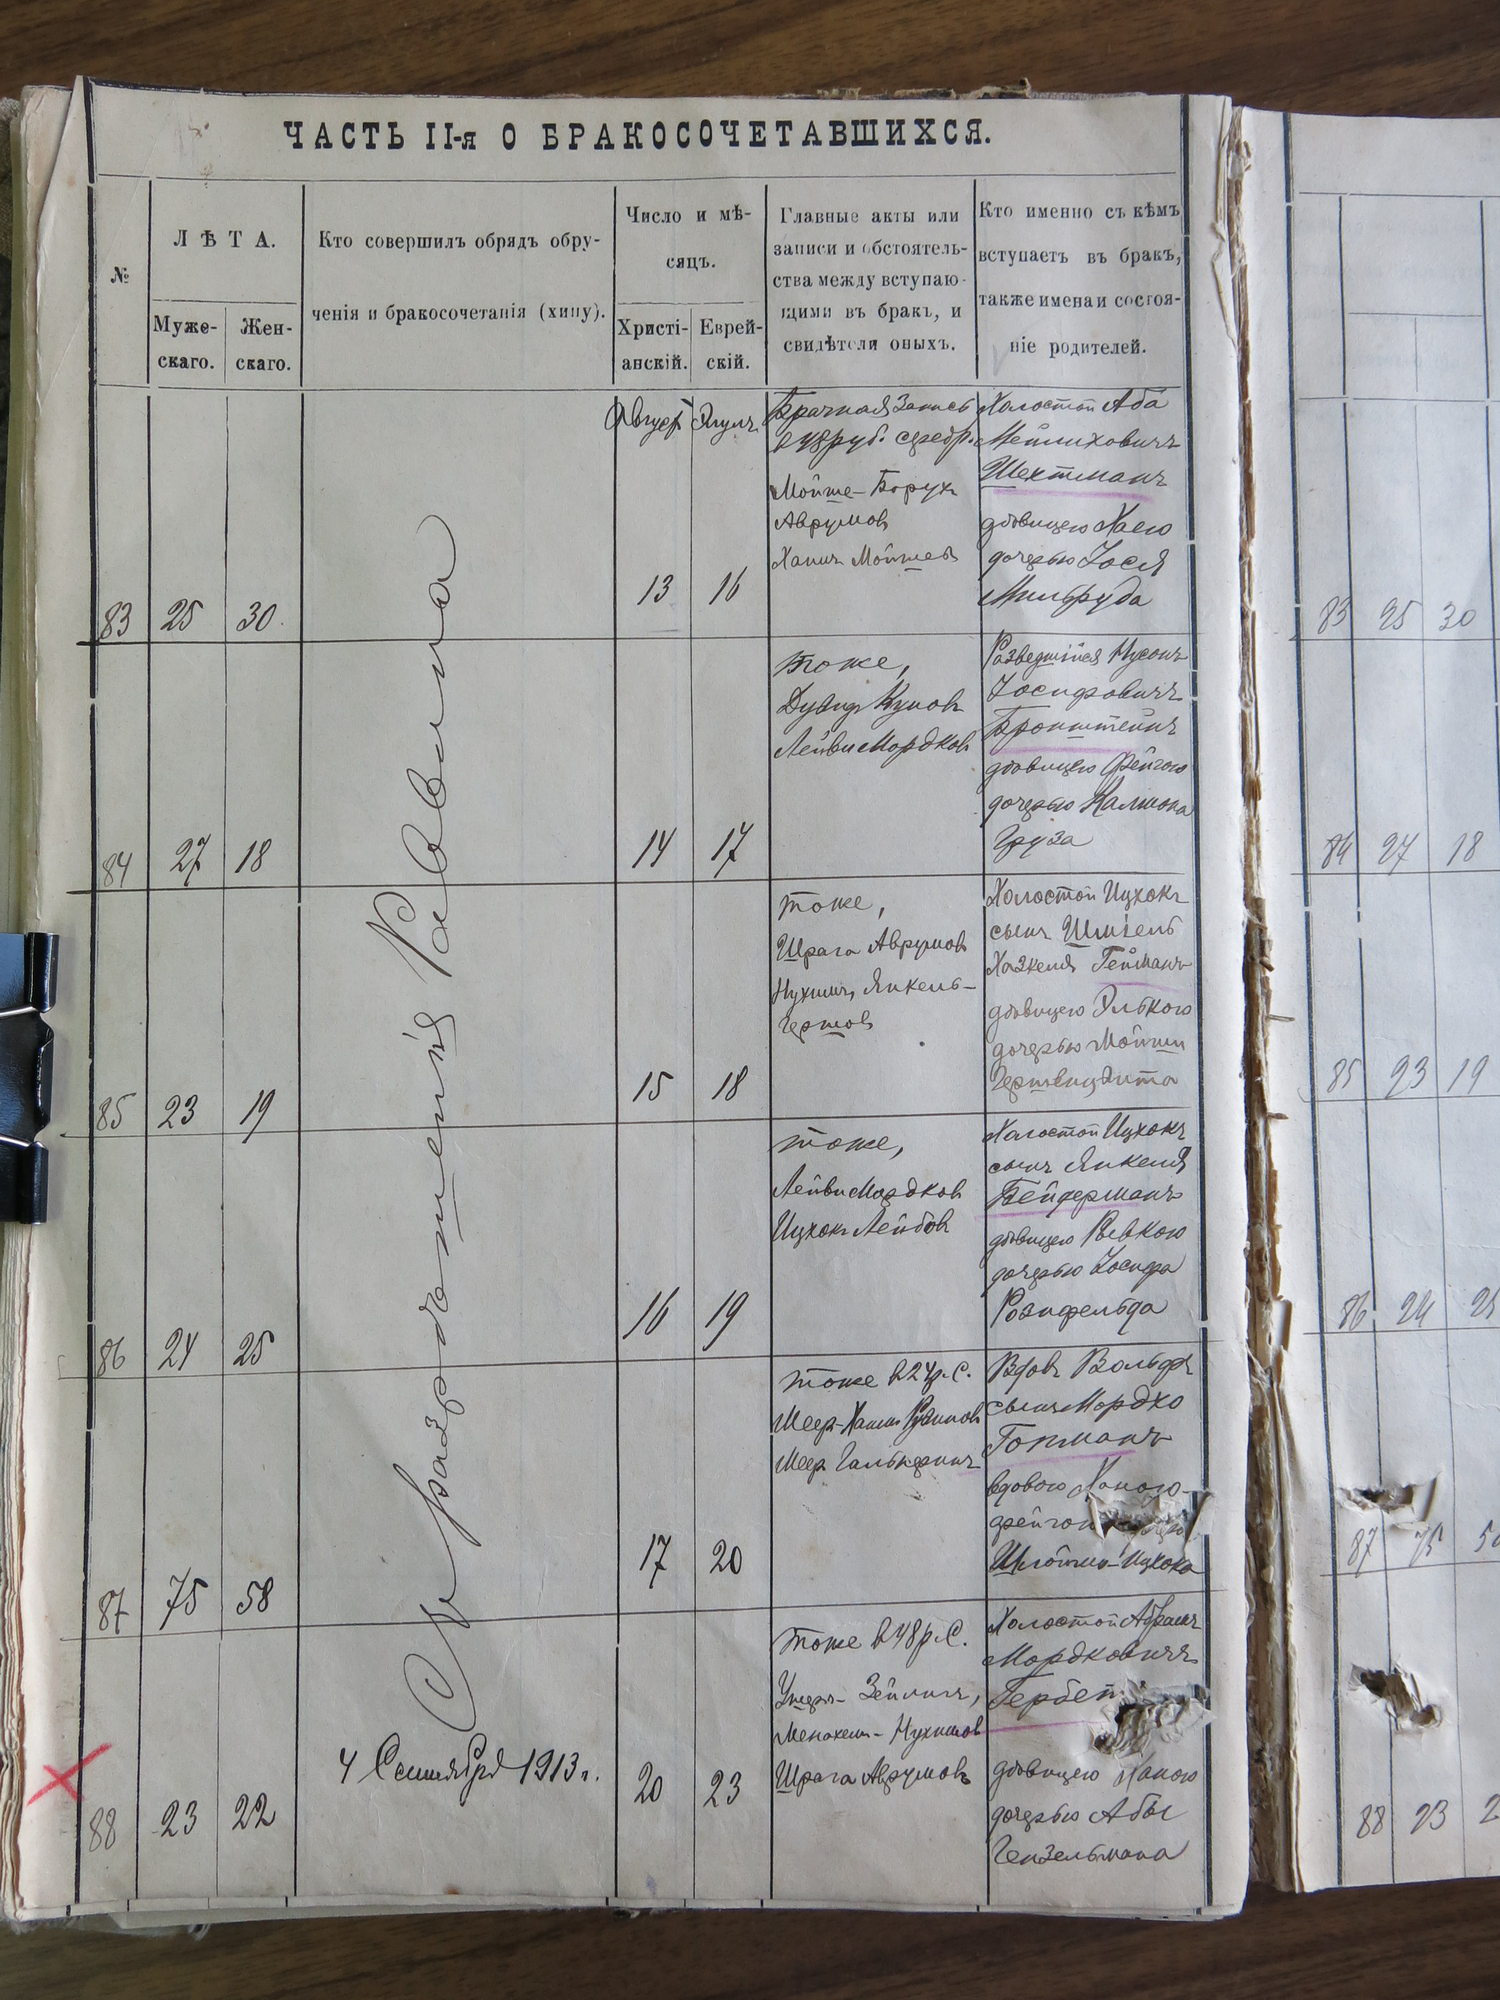 ЧАСТЬ II-я О БРАКОСОЧЕТАВШИХСЯ.
№
ЛѢТА.
Муже-
скаго.
Жен-
скаго.
Кто совершилъ обрядъ обру-
ченія и бракосочетанія (хипу).
Число и мѣ-
сяцъ.
Христі-
анскій.
Еврей-
скій.
Главные акты или
записи и обстоятель-
ства между вступаю-
щими въ бракъ, и
свидѣтели оныхъ.
Кто именно съ кѣмъ
вступаетъ въ бракъ,
также имена и состоя-
ніе родителей.
Съ разрѣшенія Раввина
4 Сентября 1913 г.
83 25 30
Августъ
13 16
Брачная Запись
в 48 руб. серебр.
Мойше-Борухъ
Аврумовъ
Мойшевъ
Холостой Аба
Мейлиховичъ
Шехтманъ
дѣвицею Хаею
дочерью Іося
Мильруда
84 27 18
14 17
тоже,
Дувидъ
Лейви Мордковъ
Разведшійся Нусонъ
Іосифовичъ
Бронштейнъ
дѣвицею Фейгою
дочерью Калмона
Груза
85 23 19
15 18
тоже,
Шрага Аврумовъ
Нухимъ, Янкель-
Гершовъ
Холостой Ицхокъ
сынъ Шміель
Хаскеля Гейманъ
дѣвицею Элькою
дочерью Мойши
86 24 25
16 19
тоже,
Лейви Мордковъ
Ицхокъ Лейбовъ
Холостой Ицхокъ
сынъ Янкеля
Бейдерманъ
дѣвицею Ривкою
дочерью Іосифа
Розифельда
87 75 58
17 20
тоже в 24 р. С.
Меер-Хаим
Меер Гальперинъ
Вдовъ Вольфъ
сынъ Мордхо
Гопманъ
вдовою Ханою-
фейгою
Шлойма-Ицхока
88 23 22
20 23
тоже в 48 р. С.
Ушеръ-Зейликъ,
Менахем-Нухимовъ
Шрага Аврумовъ
Холостой Абрамъ
Мордковичъ
дѣвицею Ханою
дочерью Абы
Гензельмана
83 25 30
84 27 18
85 23 19
86 24 25
87 75
88 23